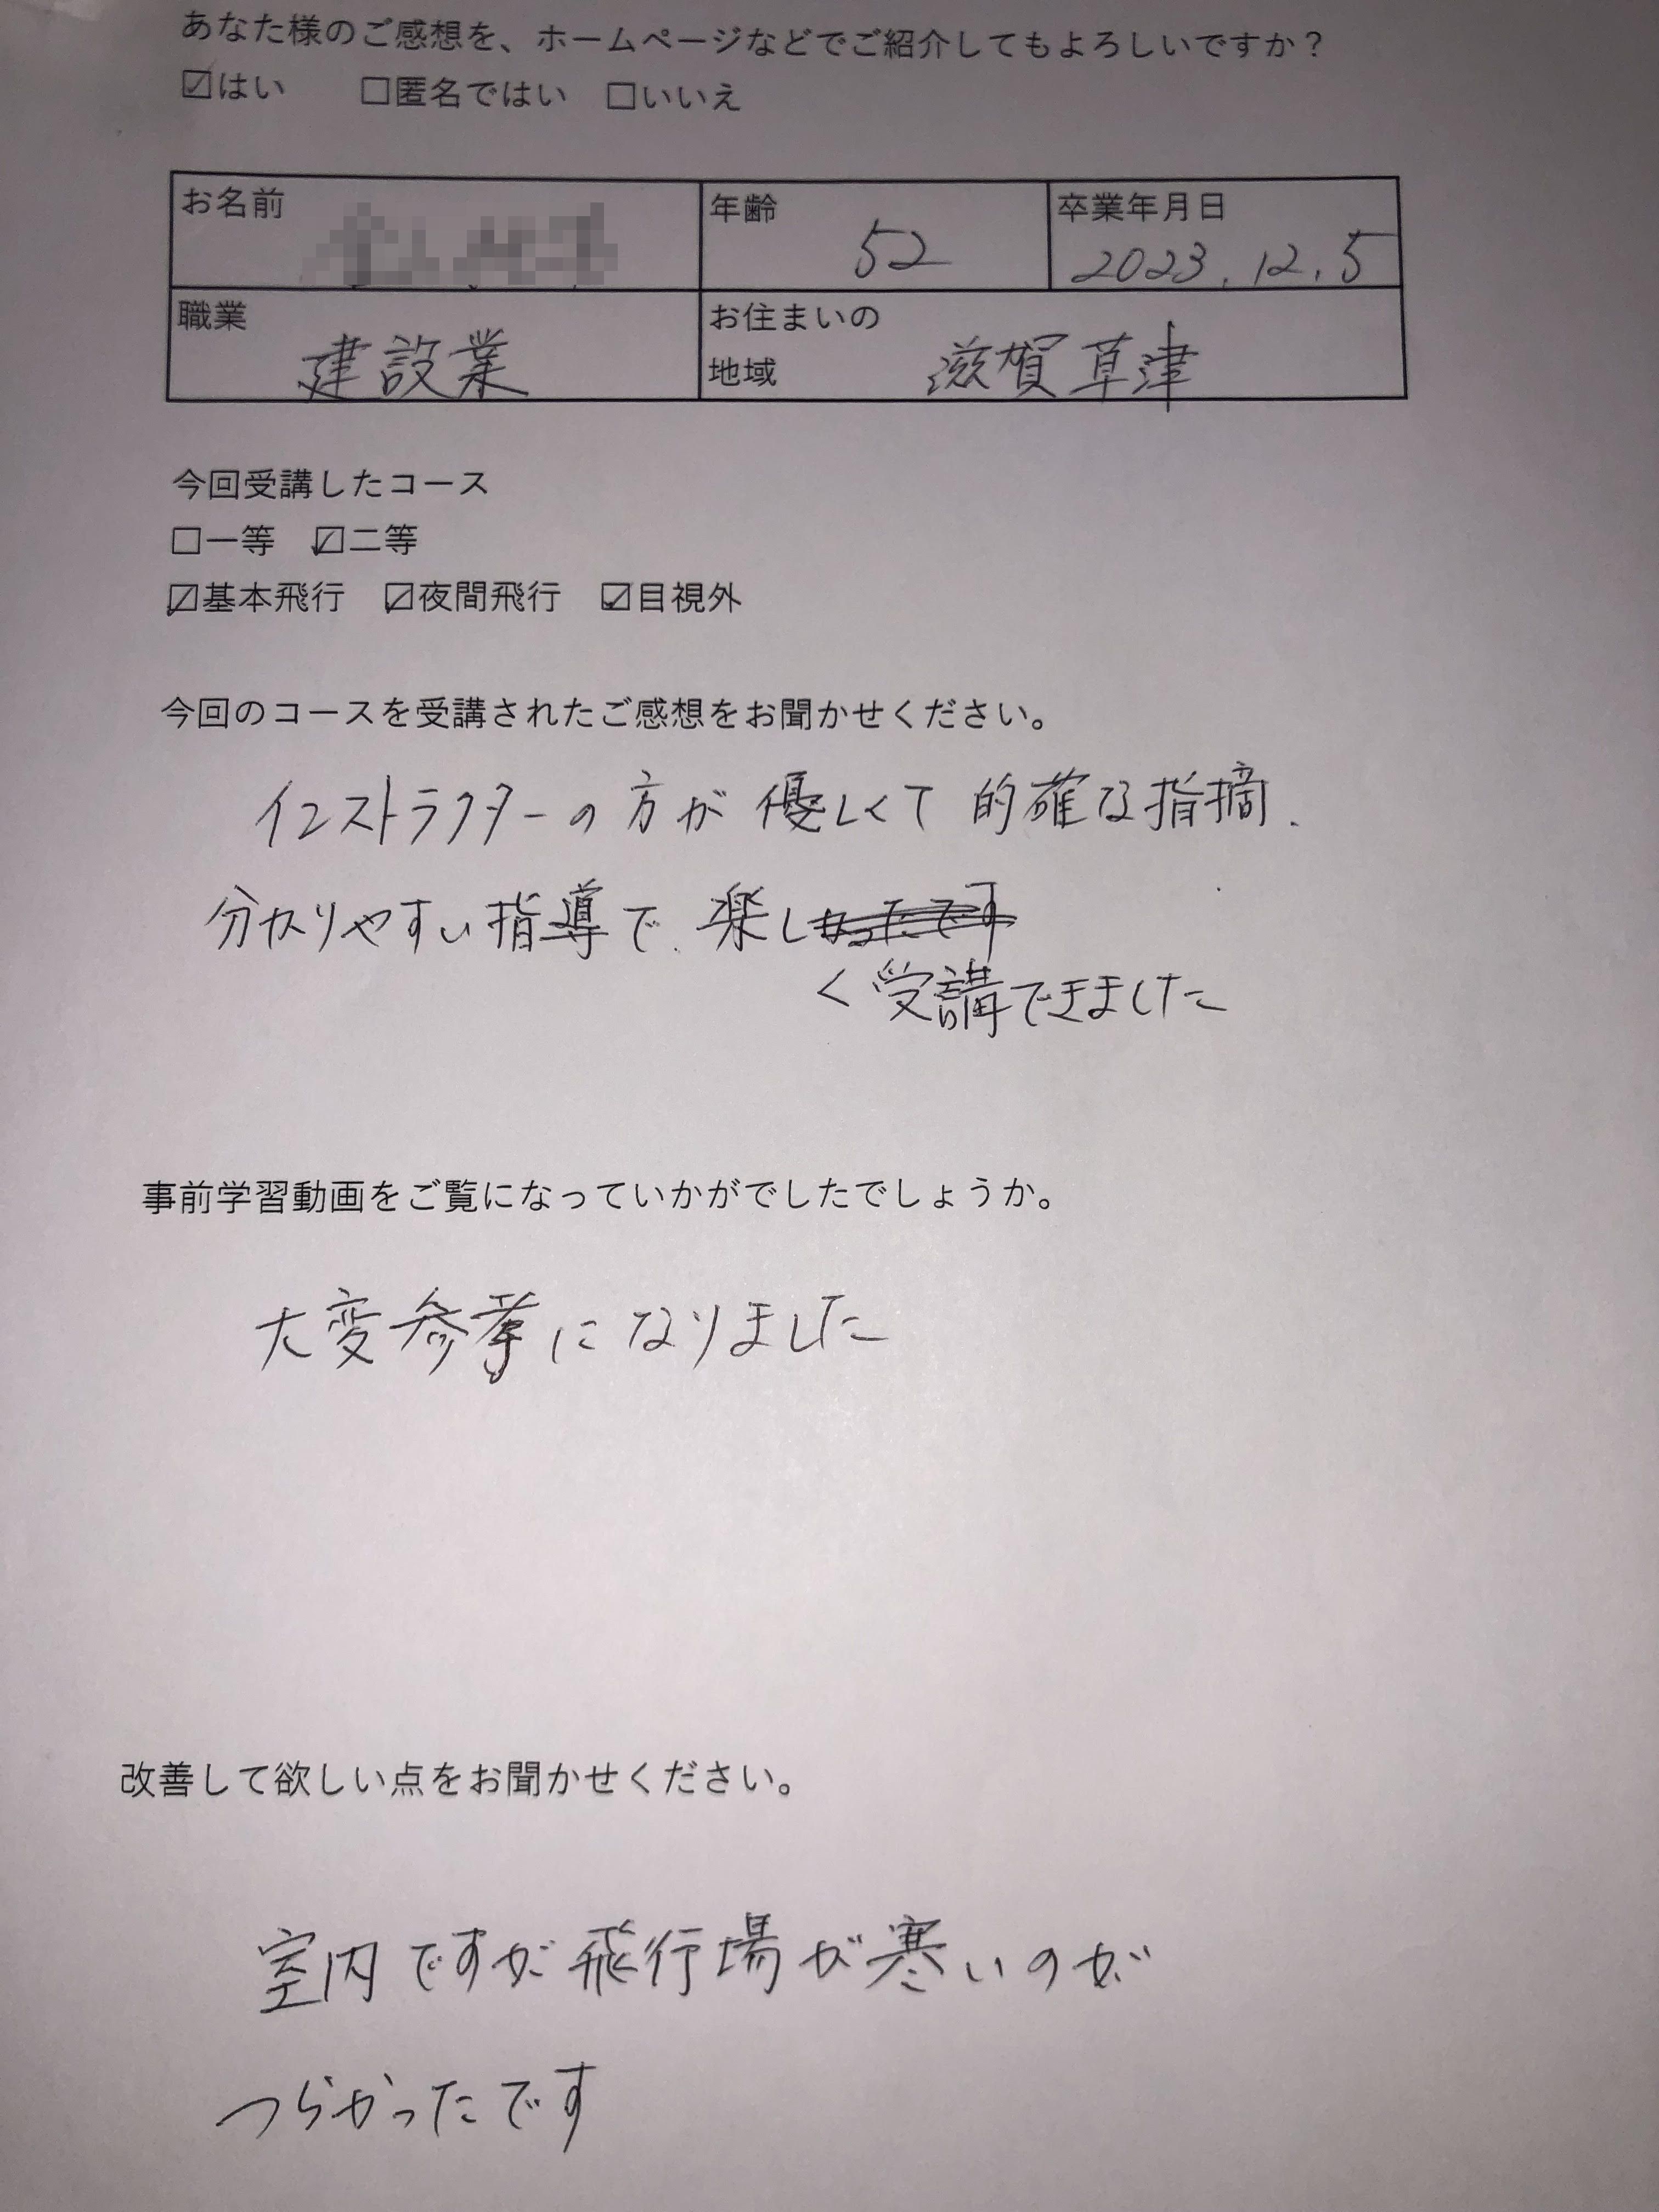 あなた様のご感想を、ホームページなどでご紹介してもよろしいですか？
☑はい　□匿名ではい　□いいえ
お名前
年齢 52
卒業年月日 2023.12.5
職業 建設業
お住まいの地域 滋賀草津
今回受講したコース
□一等　☑二等
☑基本飛行　☑夜間飛行　☑目視外
今回のコースを受講されたご感想をお聞かせください。
インストラクターの方が優しくて的確な指摘、
分かりやすい指導で、楽し
く受講できました
事前学習動画をご覧になっていかがでしたでしょうか。
大変参考になりました
改善して欲しい点をお聞かせください。
室内ですが飛行場が寒いのが
つらかったです